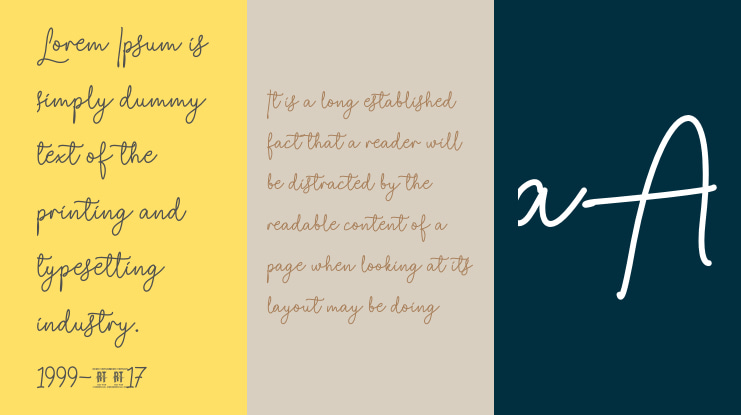 Lorem Ipsum is
simply dummy
text of the
printing and
typesetting
industry.
1999-17
It is a long established
fact that a reader will
be distracted by the
readable content of a
page when looking at its
layout may be doing
a A